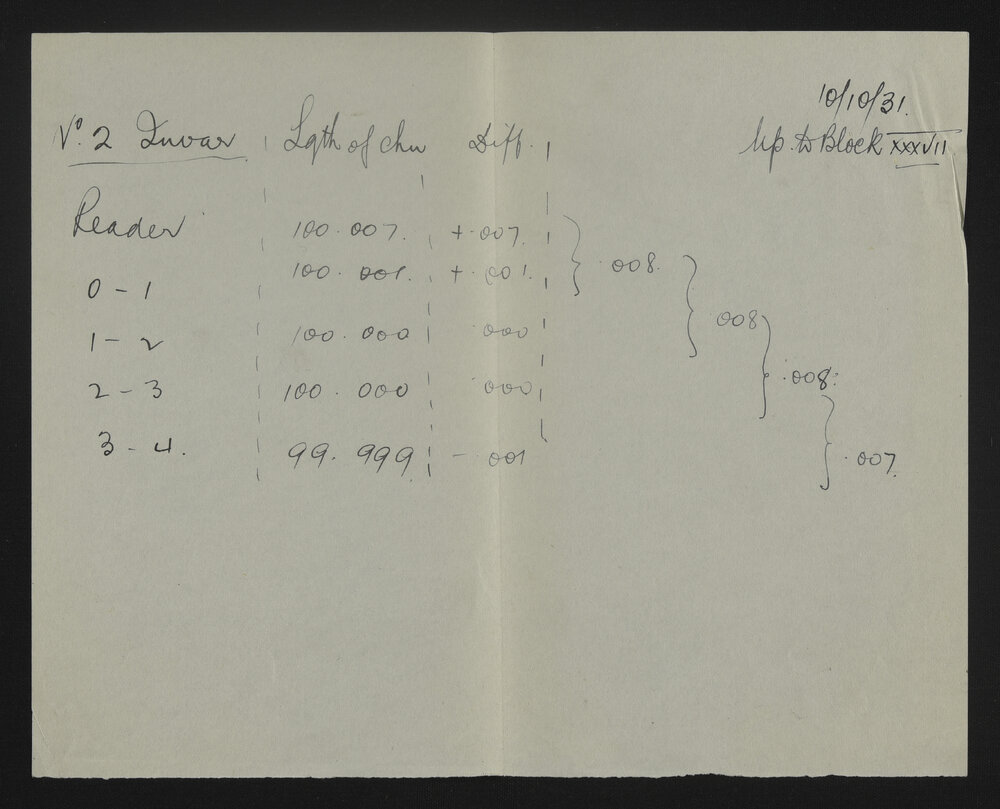 10/10/31.
Nº. 2 Invar Lgth of chn Diff. Up to Block XXXVII
Reader 100.007. +.007.
0-1 100.001. +.001. .008.
1-2 100.000 .000 .008
2-3 100.000 .000 .008.
3-4. 99.999 -.001 .007.